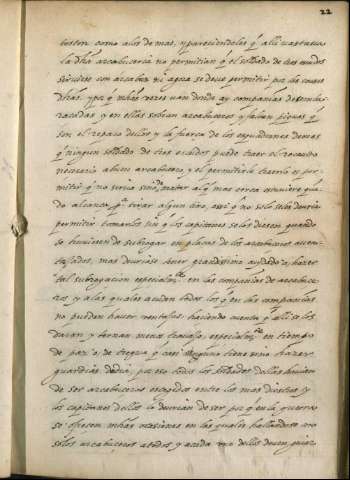 22
boston como a los demas, y pareciendoles q̃ alli bastauan
la dha arcabuceria no permitian q̃ el soldado de tres escudos
siruiese con arcabuz ni agora se deue permitir por las causas
dhas. y por q̃ mhas vezes van donde ay compañias desemba
razadas y en ellas sobran arcabuceros y faltan picas q̃
son el reparo dellos y la fuerça de los esquadrones demas
q̃ ningun soldado de tres escudos puede traer el recaudo
necesario a buen arcabucero y el permitirle traerlo es per
mitir q̃ no sirua sino matar al q̃ mas cerca estuuiere
do alcança q̃ tirar algun tiro, assi q̃ no solo se les deuria
permitir tomarlos sin q̃ los capitanes se los diesen quando
se huuiesen de subrogar en plaças de los arcabuceros auen
tajados, mas deuriase tener grandissimo cuydado de hazer
tal subrogacion especialm.te en las compañias de arcabuce
ros y a las quales acuden todos los q̃ en las compañias
no pueden hauer ventajas haciendo cuenta q̃ alli se les
daran y ternan menos trauajo, especialm.te en tiempo
de paz o de tregua q̃ casi ninguno tiene sino hazer
guardias por eso todos los soldados dellas hauian
de ser arcabuceros escogidos entre los mas diestros y
los capitanes dellas lo deurian de ser por q̃ en la guerra
se ofrecen mhas ocasiones en las quales hallandose con
solos arcabuceros a todos, y a cada uno dellos deuen guiar